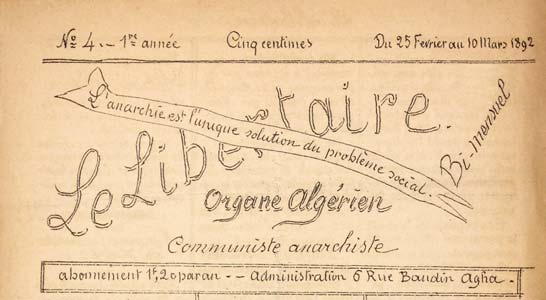 No 4. - 1re année Cinq centimes Du 25 Fevrier au 10 Mars 1892
Le Libertaire.
L'anarchie est l'unique solution du problème social.
Bi-mensuel
Organe Algérien
Communiste anarchiste
abonnement 1f,20 par an. - - Administration 6 Rue Baudin Agha.